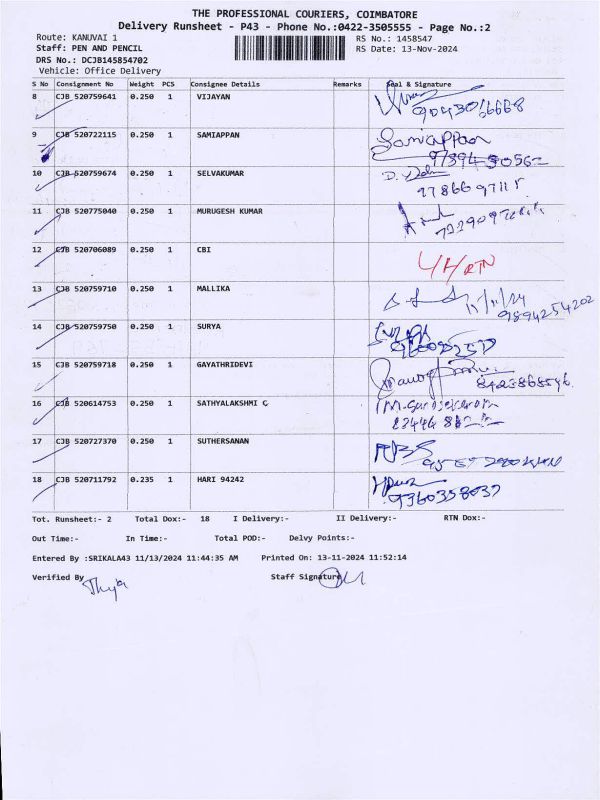 THE PROFESSIONAL COURIERS, COIMBATORE
Delivery Runsheet - P43 - Phone No.:0422-3505555 - Page No.:2
Route: KANUVAI 1 RS No.: 1458547
Staff: PEN AND PENCIL RS Date: 13-Nov-2024
DRS No.: DCJB145854702
Vehicle: Office Delivery
S No Consignment No Weight PCS Consignee Details Remarks Seal & Signature
8 CJB 520759641 0.250 1 VIJAYAN
9 CJB 520722115 0.250 1 SAMIAPPAN Samiappan
10 CJB 520759674 0.250 1 SELVAKUMAR
9786697115
11 CJB 520775040 0.250 1 MURUGESH KUMAR
12 CJB 520706089 0.250 1 CBI
13 CJB 520759710 0.250 1 MALLIKA
9894254202
14 CJB 520759750 0.250 1 SURYA
15 CJB 520759718 0.250 1 GAYATHRIDEVI
16 CJB 520614753 0.250 1 SATHYALAKSHMI C
17 CJB 520727370 0.250 1 SUTHERSANAN
18 CJB 520711792 0.235 1 HARI 94242
9360358037
Tot. Runsheet:- 2 Total Dox:- 18 I Delivery:- II Delivery:- RTN Dox:-
Out Time:- In Time:- Total POD:- Delvy Points:-
Entered By :SRIKALA43 11/13/2024 11:44:35 AM Printed On: 13-11-2024 11:52:14
Verified By Staff Signature